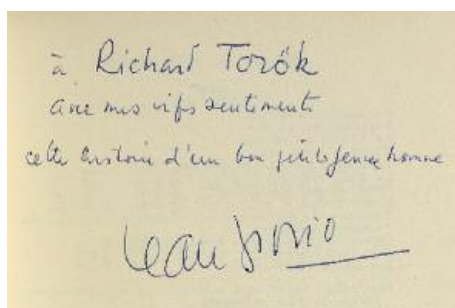 à Richard Torök
avec mes vifs sentiments
cette histoire d'un bon petit jeune homme
Jean